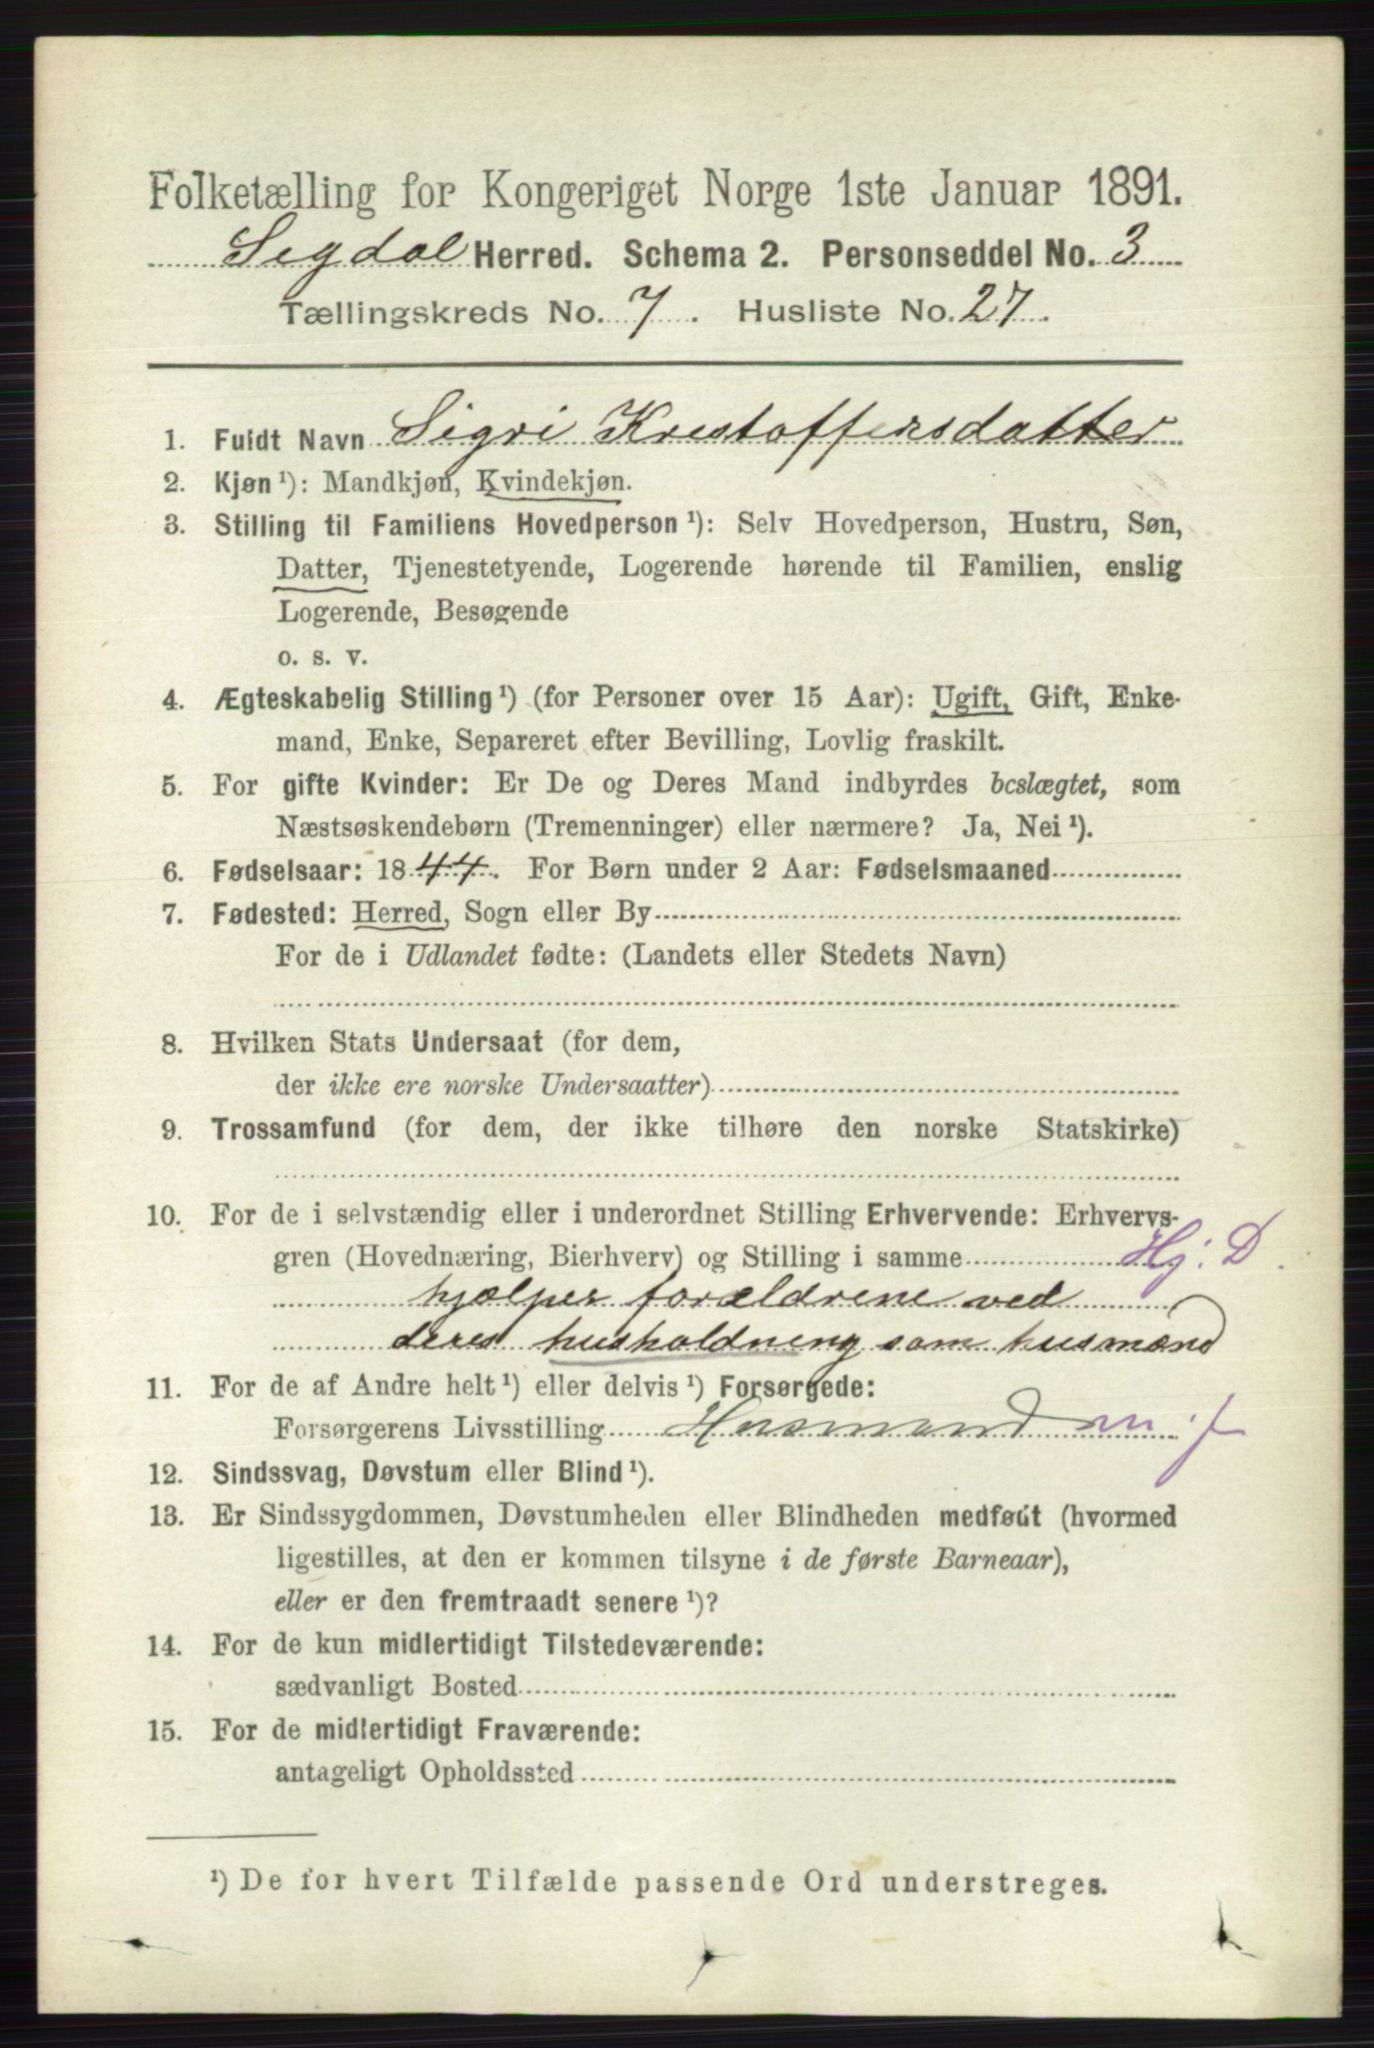 Folketælling for Kongeriget Norge 1ste Januar 1891.
Sigdal Herred. Schema 2. Personseddel No. 3
Tællingskreds No. 7. Husliste No. 27.
1. Fuldt Navn Sigri Krestoffersdatter
2. Kjøn ¹): Mandkjøn, Kvindekjøn.
3. Stilling til Familiens Hovedperson ¹): Selv Hovedperson, Hustru, Søn,
Datter, Tjenestetyende, Logerende hørende til Familien, enslig
Logerende, Besøgende
o. s. v.
4. Ægteskabelig Stilling ¹) (for Personer over 15 Aar): Ugift, Gift, Enke-
mand, Enke, Separeret efter Bevilling, Lovlig fraskilt.
5. For gifte Kvinder: Er De og Deres Mand indbyrdes beslægtet, som
Næstsøskendebørn (Tremenninger) eller nærmere? Ja, Nei ¹).
6. Fødselsaar: 1844. For Børn under 2 Aar: Fødselsmaaned
7. Fødested: Herred, Sogn eller By
For de i Udlandet fødte: (Landets eller Stedets Navn)
8. Hvilken Stats Undersaat (for dem,
der ikke ere norske Undersaatter)
9. Trossamfund (for dem, der ikke tilhøre den norske Statskirke)
10. For de i selvstændig eller i underordnet Stilling Erhvervende: Erhvervs-
gren (Hovednæring, Bierhverv) og Stilling i samme Hj: D.
hjælper forældrene ved
deres husholdning som husmænd
11. For de af Andre helt ¹) eller delvis ¹) Forsørgede:
Forsørgerens Livsstilling Husmand m. j
12. Sindssvag, Døvstum eller Blind ¹).
13. Er Sindssygdommen, Døvstumheden eller Blindheden medfødt (hvormed
ligestilles, at den er kommen tilsyne i de første Barneaar),
eller er den fremtraadt senere ¹)?
14. For de kun midlertidigt Tilstedeværende:
sædvanligt Bosted
15. For de midlertidigt Fraværende:
antageligt Opholdssted
¹) De for hvert Tilfælde passende Ord understreges.